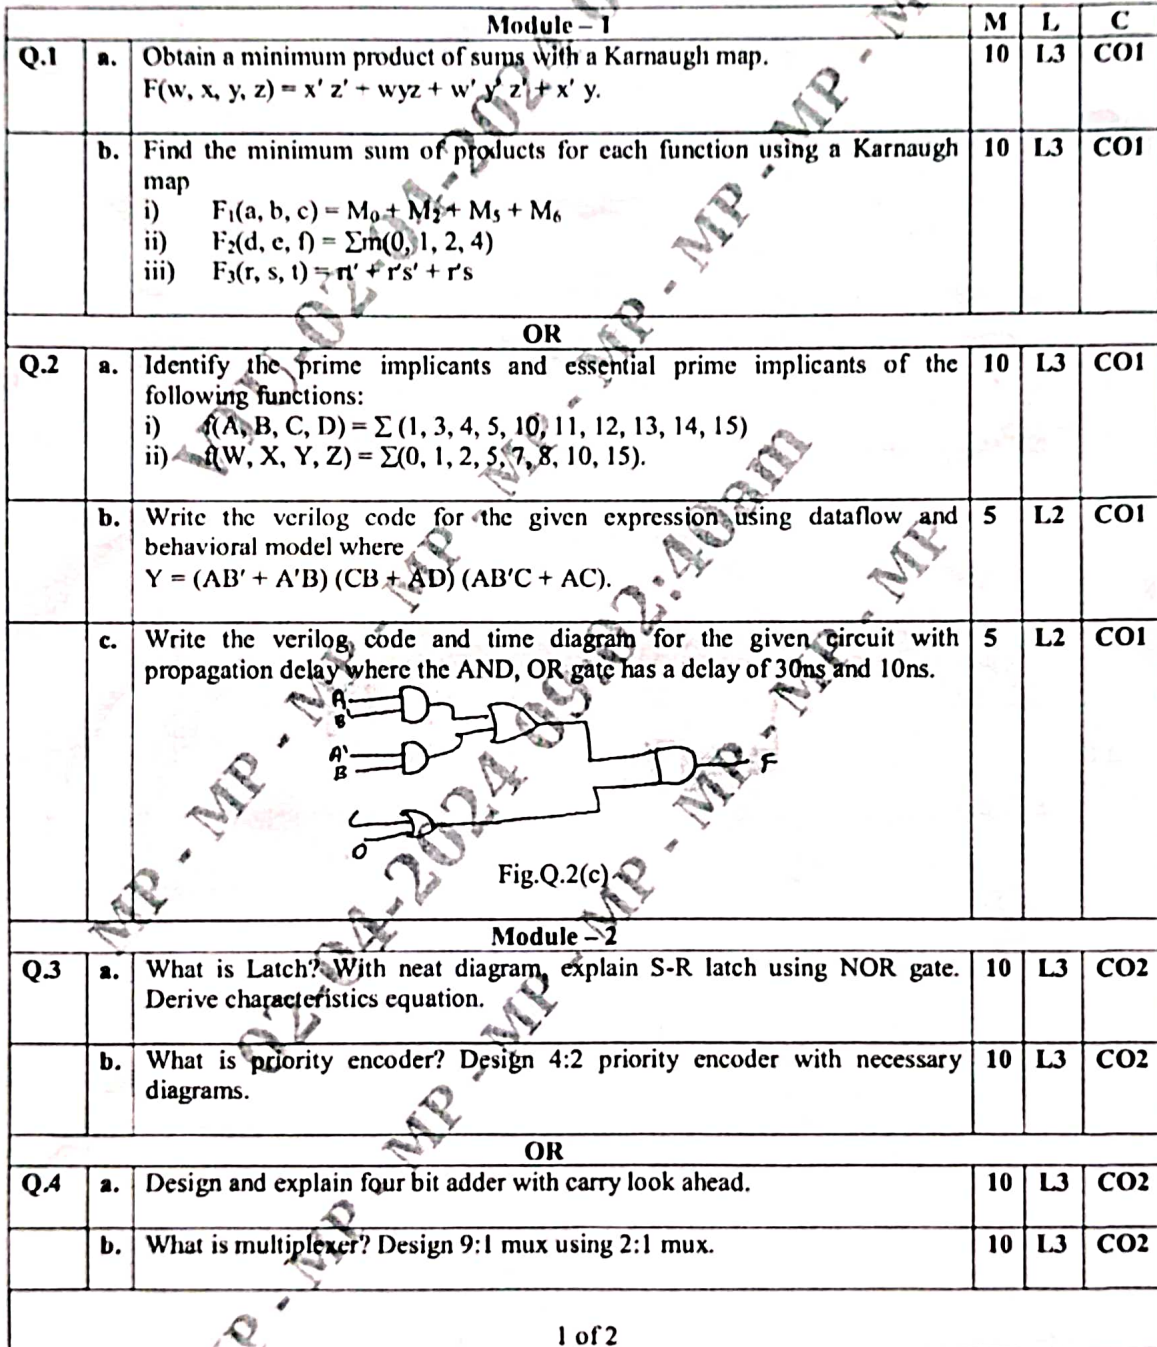 Module – 1 M L C
Q.1 a. Obtain a minimum product of sums with a Karnaugh map. 10 L3 CO1
F(w, x, y, z) = x' z' + wyz + w' y' z' + x' y.
b. Find the minimum sum of products for each function using a Karnaugh 10 L3 CO1
map
i) F₁(a, b, c) = M₀ + M₂ + M₅ + M₆
ii) F₂(d, e, f) = Σm(0, 1, 2, 4)
iii) F₃(r, s, t) = rt' + r's' + r's
OR
Q.2 a. Identify the prime implicants and essential prime implicants of the 10 L3 CO1
following functions:
i) f(A, B, C, D) = Σ (1, 3, 4, 5, 10, 11, 12, 13, 14, 15)
ii) f(W, X, Y, Z) = Σ(0, 1, 2, 5, 7, 8, 10, 15).
b. Write the verilog code for the given expression using dataflow and 5 L2 CO1
behavioral model where
Y = (AB' + A'B) (CB + AD) (AB'C + AC).
c. Write the verilog code and time diagram for the given circuit with 5 L2 CO1
propagation delay where the AND, OR gate has a delay of 30ns and 10ns.
A
B'
A'
B
F
C
D
Fig.Q.2(c)
Module – 2
Q.3 a. What is Latch? With neat diagram, explain S-R latch using NOR gate. 10 L3 CO2
Derive characteristics equation.
b. What is priority encoder? Design 4:2 priority encoder with necessary 10 L3 CO2
diagrams.
OR
Q.4 a. Design and explain four bit adder with carry look ahead. 10 L3 CO2
b. What is multiplexer? Design 9:1 mux using 2:1 mux. 10 L3 CO2
1 of 2
VTU-02-04-202
MP - MP - MP - MP - MP - MP - MP
02-04-2024 09:02:40am
MP - MP - MP - MP - MP - MP - MP